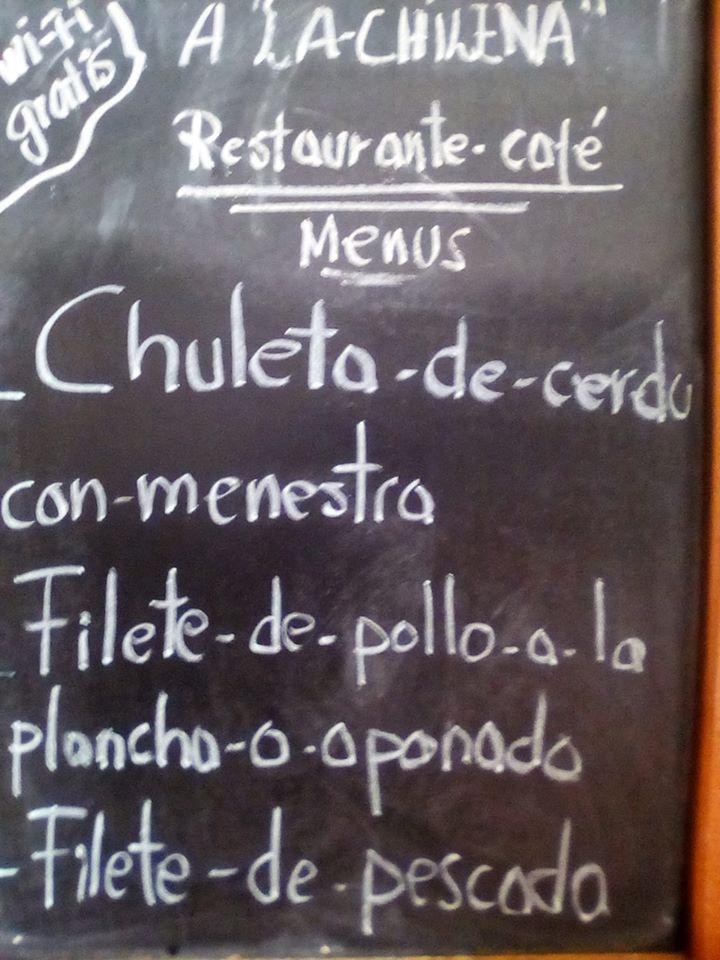 wi-fi
gratis
A "LA-CHILENA"
Restaurante-café
Menus
-Chuleta-de-cerdo
con-menestra
Filete-de-pollo-a-la
plancha-o-aponado
-Filete-de-pescada